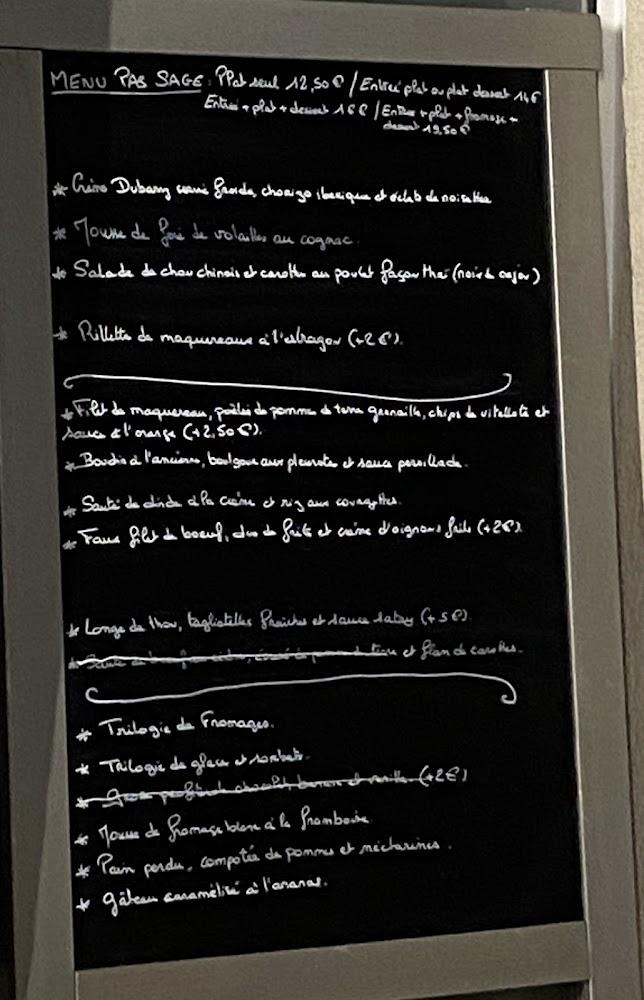 MENU PAS SAGE: Plat seul 12,50€ / Entrée plat ou plat dessert 14€
Entrée + plat + dessert 16€ / Entrée + plat + fromage +
dessert 19,50€
* Crème Dubarry servie froide, chorizo iberique et éclats de noisettes
* Mousse de foie de volailles au cognac.
* Salade de chou chinois et carottes au poulet façon thaï (noix de cajou)
* Rillettes de maquereaux à l'estragon (+2€).
* Filet de maquereau, poêlée de pomme de terre grenaille, chips de vitelotte et
sauce à l'orange (+2,50€).
* Boudin à l'ancienne, boulgour aux pleurotes et sauce persillade.
* Sauté de dinde à la crème et riz aux courgettes.
* Faux filet de boeuf, duo de frites et crème d'oignons frits (+2€).
* Longe de thon, tagliatelles fraîches et sauce satay (+5€).
* Sauté de terre et flan de carottes.
* Trilogie de Fromages.
* Trilogie de glaces et sorbets.
* profiterole chocolat, et vanille. (+2€)
* Mousse de fromage blanc à la framboise.
* Pain perdu, compotée de pommes et nectarines.
* Gâteau caramélisé à l'ananas.